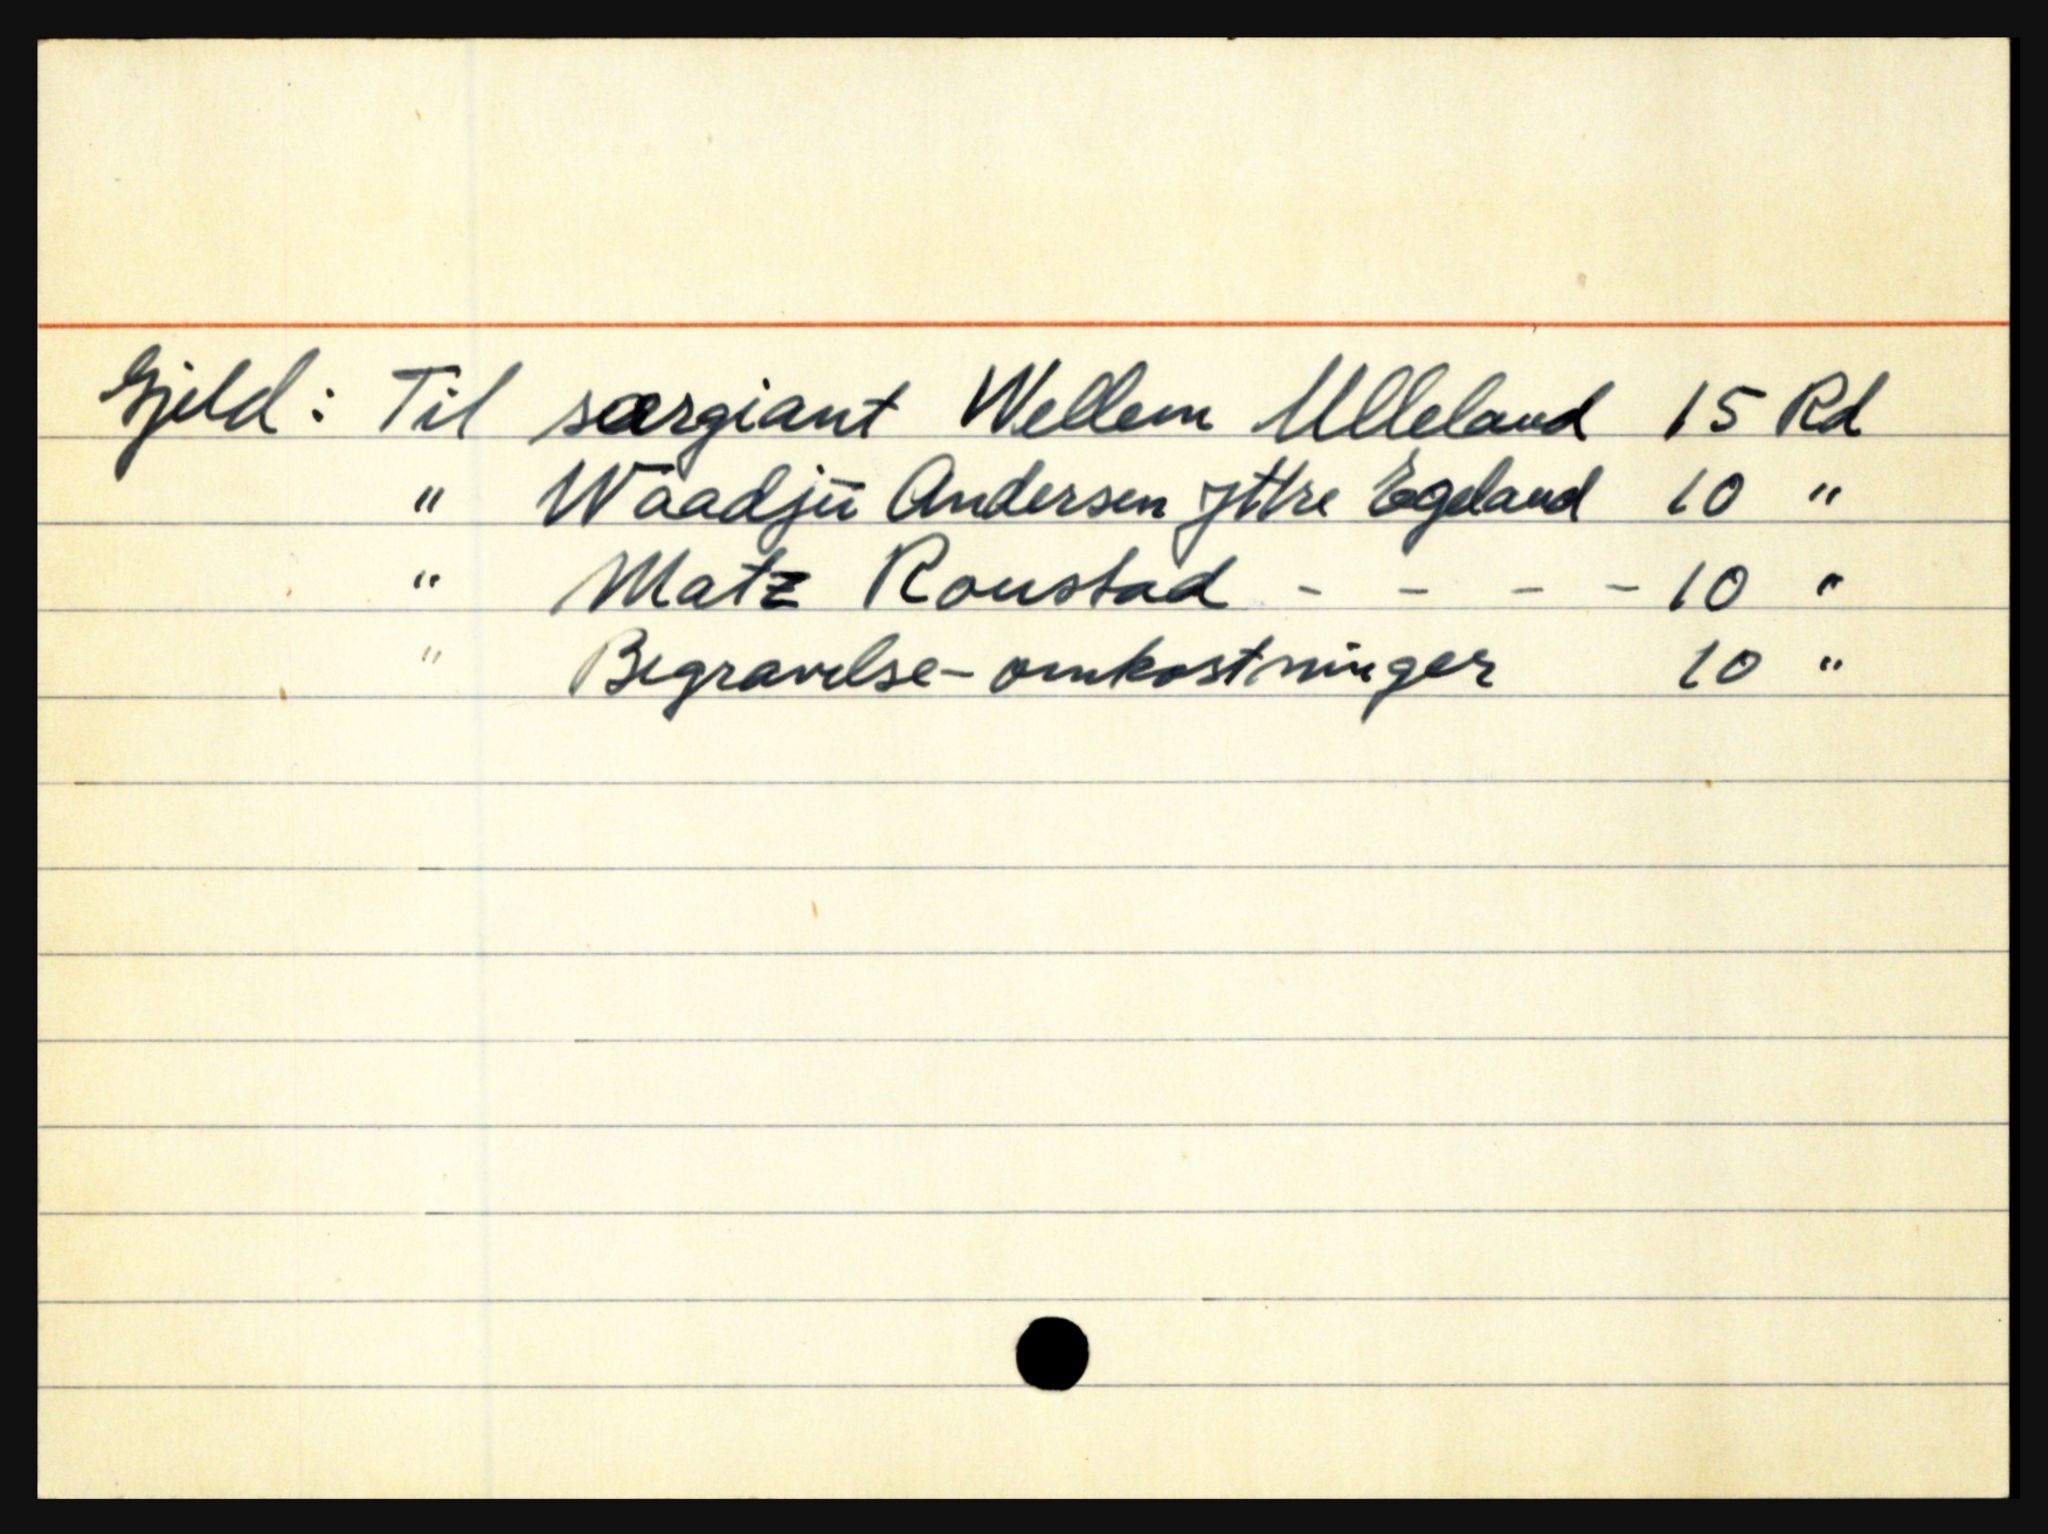 Gjeld: Til særgiant Wellem Ulleland 15 Rd
" Waadjü Andersen Yttre Egeland 10 "
" Matz Roustad - - - - 10 "
" Begravelse-omkostninger 10 "